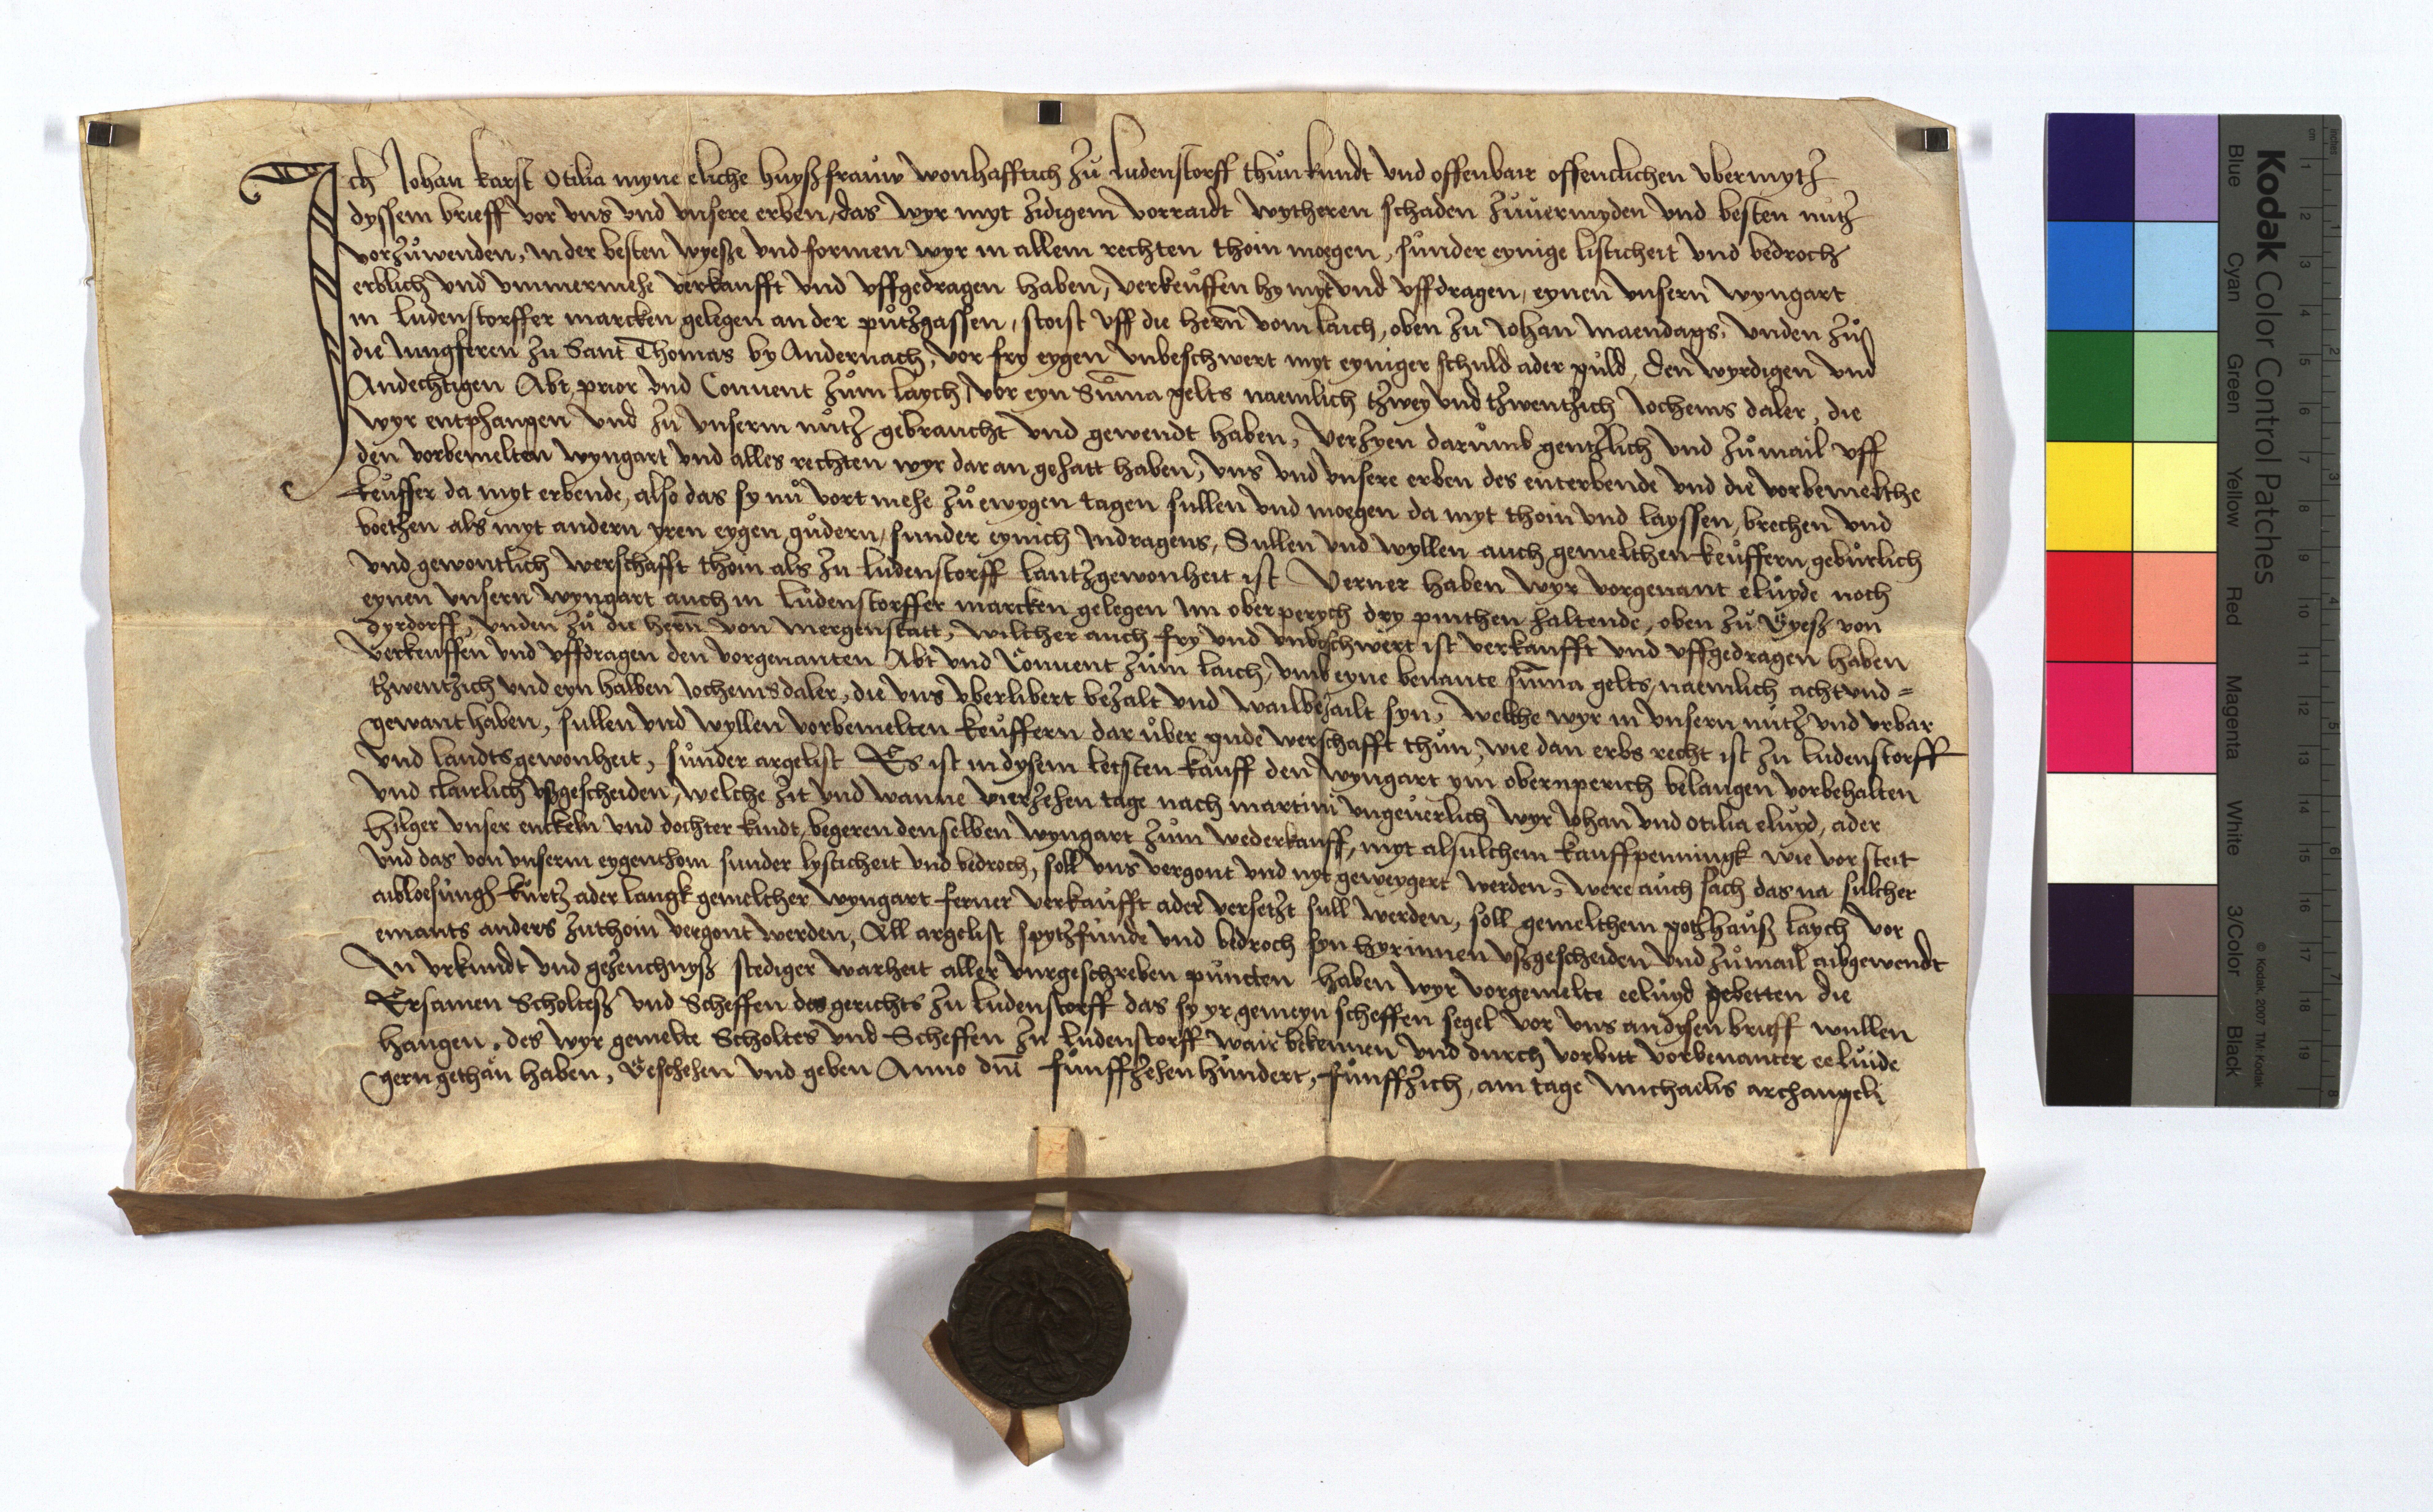 Ich Johan karst Otilia myne eliche huyßfrauw wonhafftich zu Ludenstorff thun kundt vnd offenbair offentlichen vbermytz
dyssem brieff vor vns vnd vnsere erben, das wyr myt zidigem vorraidt wytheren schaden zuuermyden vnd besten nutz
vorzuwenden, in der besten wyesze vnd formen wyr in allem rechten thoin moegen, sunder eynige listicheit vnd bedroch
erblich vnd ummermehe verkaufft vnd vffgedragen haben, verkeuffen hy myt vnd vffdragen, eynen vnsern wyngart
in Ludenstorffer marcken gelegen an der putzgassen, stoist vff die hern vom laich, oben zu Johan maendags, vnden zu
die Jungferen zu Sant Thomas by Andernach, vor fry eygen vnbeschwert myt eyniger schuld ader guld, den wyrdigen vnd
Andechtigen Abt, prior vnd Conuent zum laych, vor eyn Suma gelts naemlich tzwey vnd tzwentzich Jochems daler, die
wyr entphangen vnd zu vnserm nutz gebraucht vnd gewendt haben, verzyen darumb gentzlich vnd zumail vff
den vorbemelten wyngart vnd alles rechten wyr dar an gehatt haben, vns vnd vnsere erben des enterbende vnd die vorbemelthe
keuffer da myt erbende, also das sy nu vort mehe zu ewygen tagen sullen vnd moegen da myt thoin vnd layssen, brechen vnd
boethen als myt andern yren eygen gudern, sunder eynich Indragens, Sullen vnd wyllen auch gemelthen keuffern geburlich
vnd gewontlich werschafft thoin als zu Ludenstorff lantzgewonheit ist Verner haben wyr vorgenant eluyde noch
eynen vnsern wyngart auch in Ludenstorffer marcken gelegen Im oberperych dry pinthen haltende, oben zu Gyesz von
dyrdorff, vnden zu die hern von mergenstatt, wilcher auch fry vnd vnbeschwert ist verkaufft vnd vffgedragen haben
verkeuffen vnd vffdragen den vorgenanten Abt vnd Conuent zum laich, vmb eyne benante suma gelts, naemlich acht vnd=
tzwentzich vnd eyn halben Jochems daler, die vns vberlibert bezalt vnd wailbezailt syn, welche wyr in vnsern nutz vnd vrbar
gewant haben, sullen vnd wyllen vorbemelten keuffern dar uber gude werschafft thun, wie dan erbs recht ist zu Ludenstorff
vnd landtsgewonheit, sunder argelist Es ist in dysem letsten kauff den wyngart ym obernperich belangen vorbehalten
vnd clairlich vßgescheiden, welche zit vnd wanne vierzehen tage nach martini vngeuerlich wyr Johan vnd Otilia eluyd, ader
Hilger vnser enckeln vnd dochter kindt, begeren denselben wyngart zum wederkauff, myt alsulchem kauffpenningk wie vor steit
vnd das von vnserm eygenthom sunder lysticheit vnd bedroch, soll vns vergont vnd nyt geweygert werden, were auch sach das na sulcher
aibloesungh kurtz ader langk gemelther wyngart ferner verkaufft ader versetzt sull werden, soll gemelthem gotzhauß laych vor
emants anders zuthoin vergont werden, All argelist spytzfunde vnd bedroch syn hyrinnen vßgescheiden vnd zumail aibgewendt
In vrkundt vnd gezeuchnyß stediger warheit aller vurgeschreben puncten haben wyr vorgemelte eeluyd gebetten die
Ersamen Scholtesz vnd Scheffen des gerichts zu Ludenstorff das sy yr gemeyn scheffen segel vor vns an dysen brieff wullen
hangen, des wyr gemelte Scholtes vnd Scheffen zu Ludenstorff wair bekennen vnd durch vorbitt vorbenanter eeluide
gern gethan haben, Geschehen vnd geben Anno dni funffzehenhundert, funffzich, am tage Michaelis archangeli
Kodak Color Control Patches
Blue Cyan Green Yellow Red Magenta White 3/Color Black
© Kodak, 2007 TM: Kodak
inches 1 2 3 4 5 6 7 8
cm 1 2 3 4 5 6 7 8 9 10 11 12 13 14 15 16 17 18 19